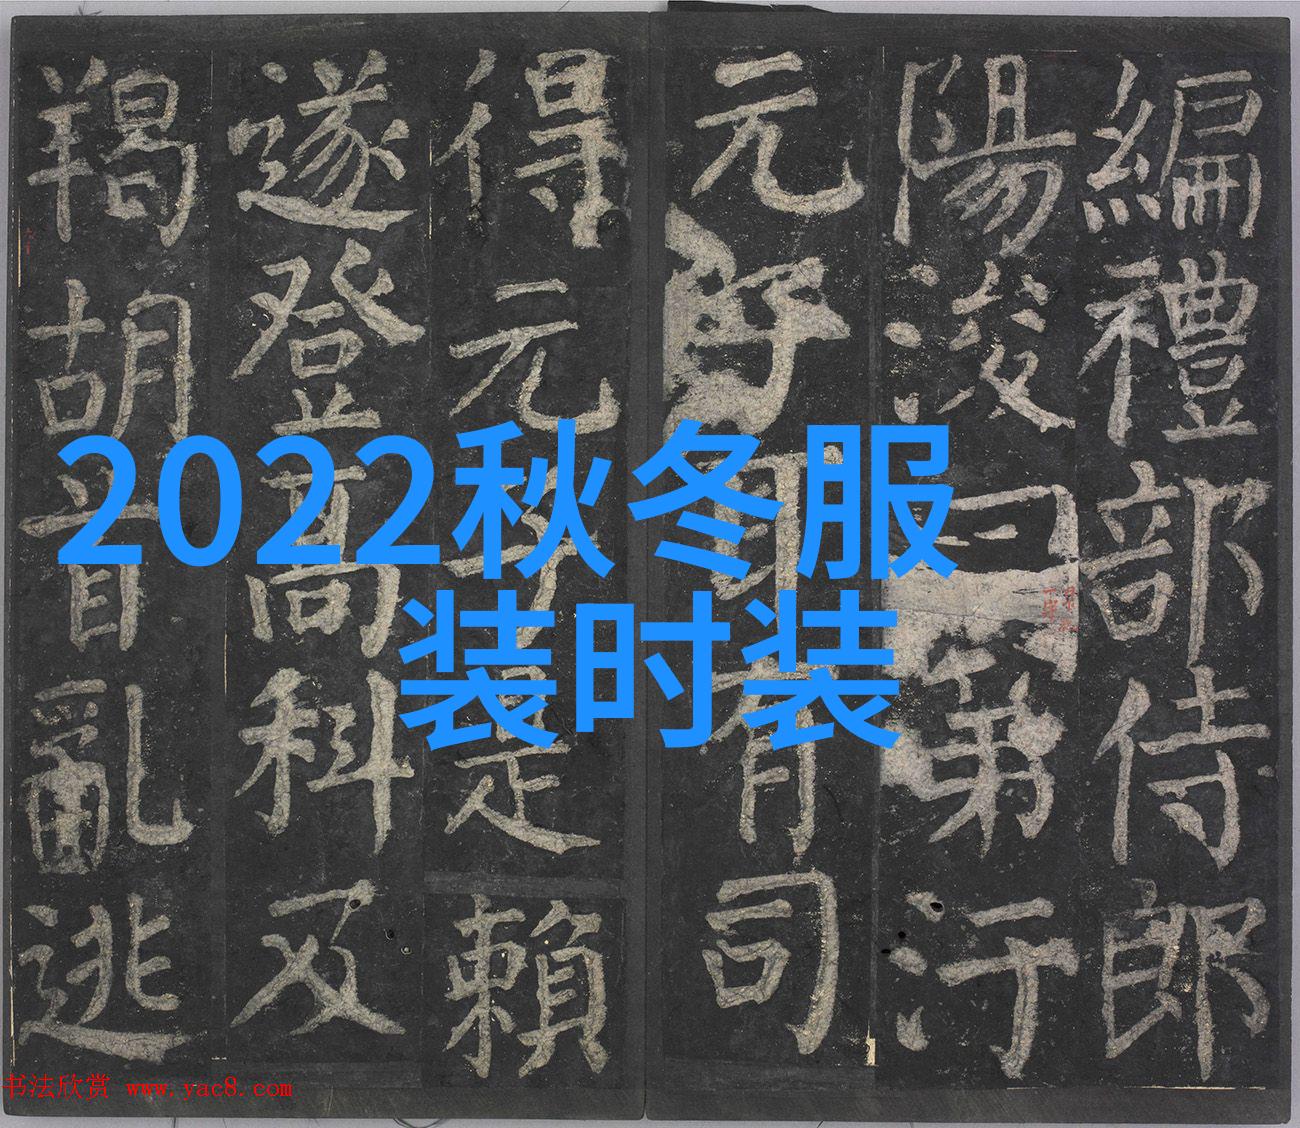 編禮部侍郎
陽浚曰第汙
元子耳有司
得元子是賴
遂登高科及
羯胡首亂逃
2022秋冬服
装时装
书法欣赏 www.yac8.com